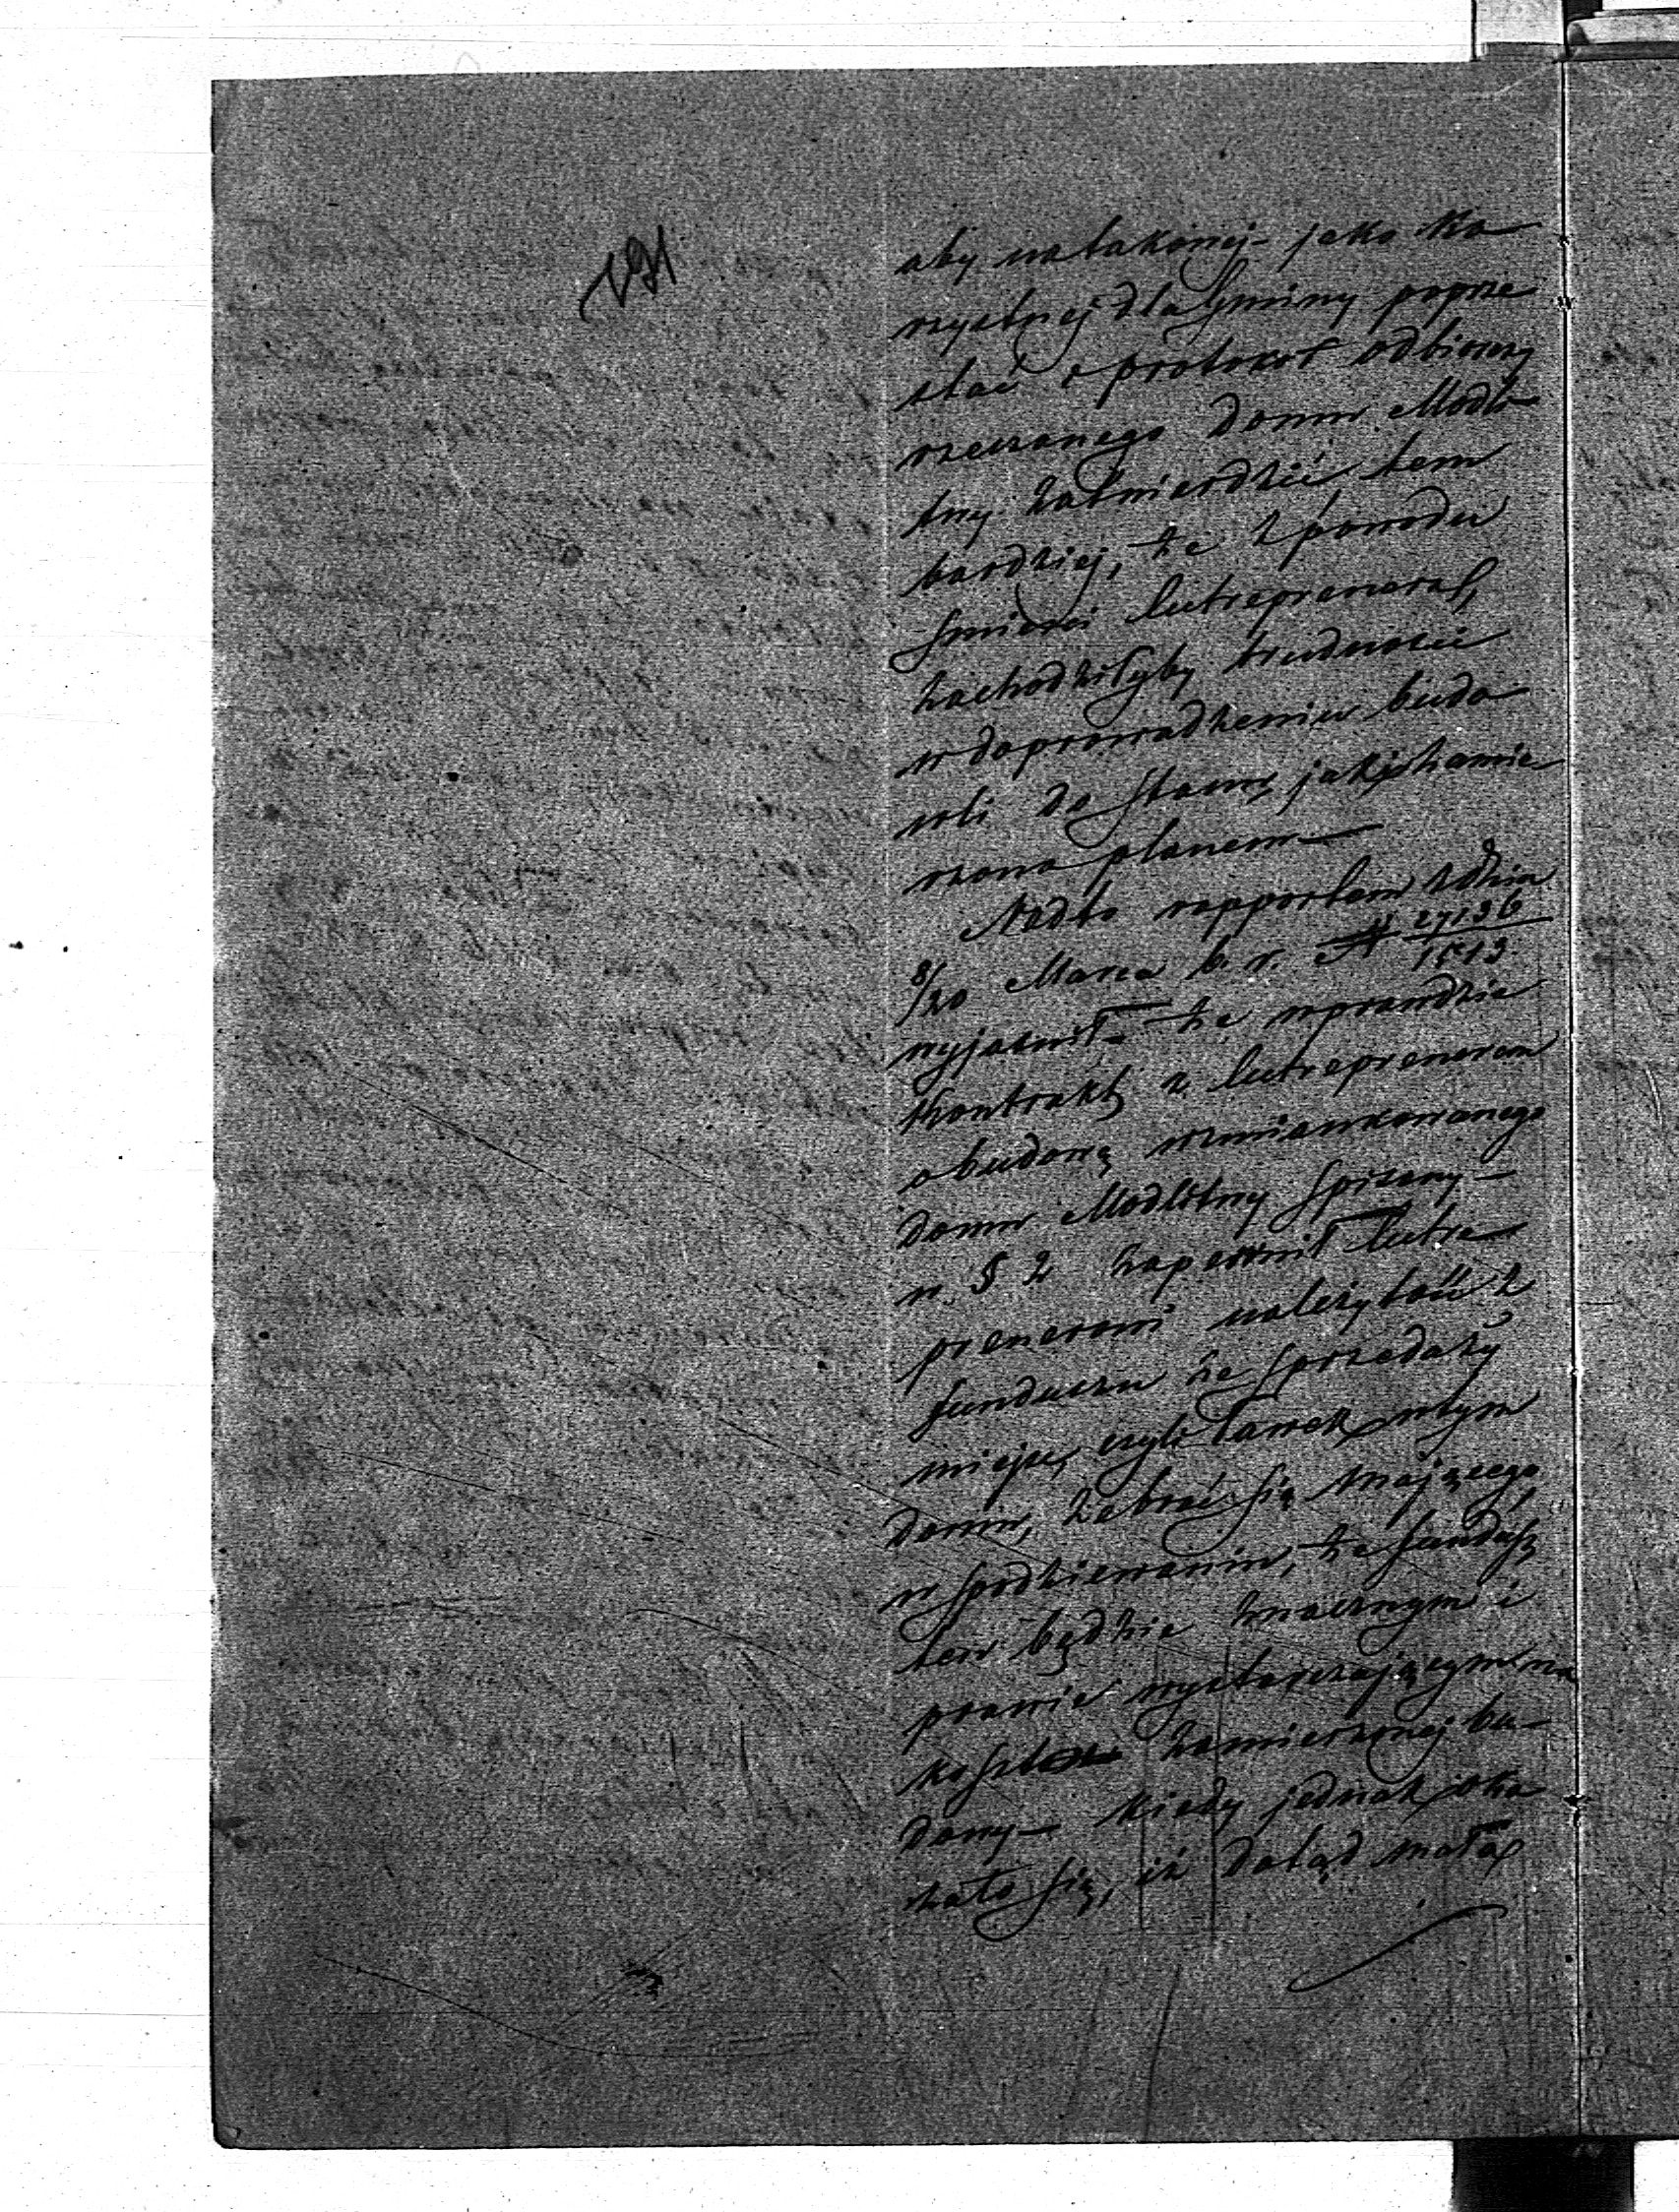 aby na takowej – jako ko
rzystnej dla Gminy poprze
stać i protokół odbiorczy
rzeczonego Domu Modli
tny zatwierdzić tem
bardziej, że z powodu
śmierci Entreprenera,
zachodziłyby trudności
w doprowadzeniu budo
wli do stanu, jaki zamie
rzono planem –
Nadto rapportem z dnia
8/20 Marca b. r. N 27136/1513
wyjaśnił – że wprawdzie
Kontrakt z Entreprenerem
o budowę wzmiankowanego
Domu Modlitwy spisany –
w § 2 zapewnił Entre
prenerowi należytość z
funduszu ze sprzedaży
miejsc, czyli ławek w tym
Domu, zebrać się mającego
w spodziewaniu, że fundusz
ten będzie znacznym i
prawie wystarczającym na
koszt zamierzonej bu–
dowy – kiedy jednak oka
zało się, iż dotąd mała